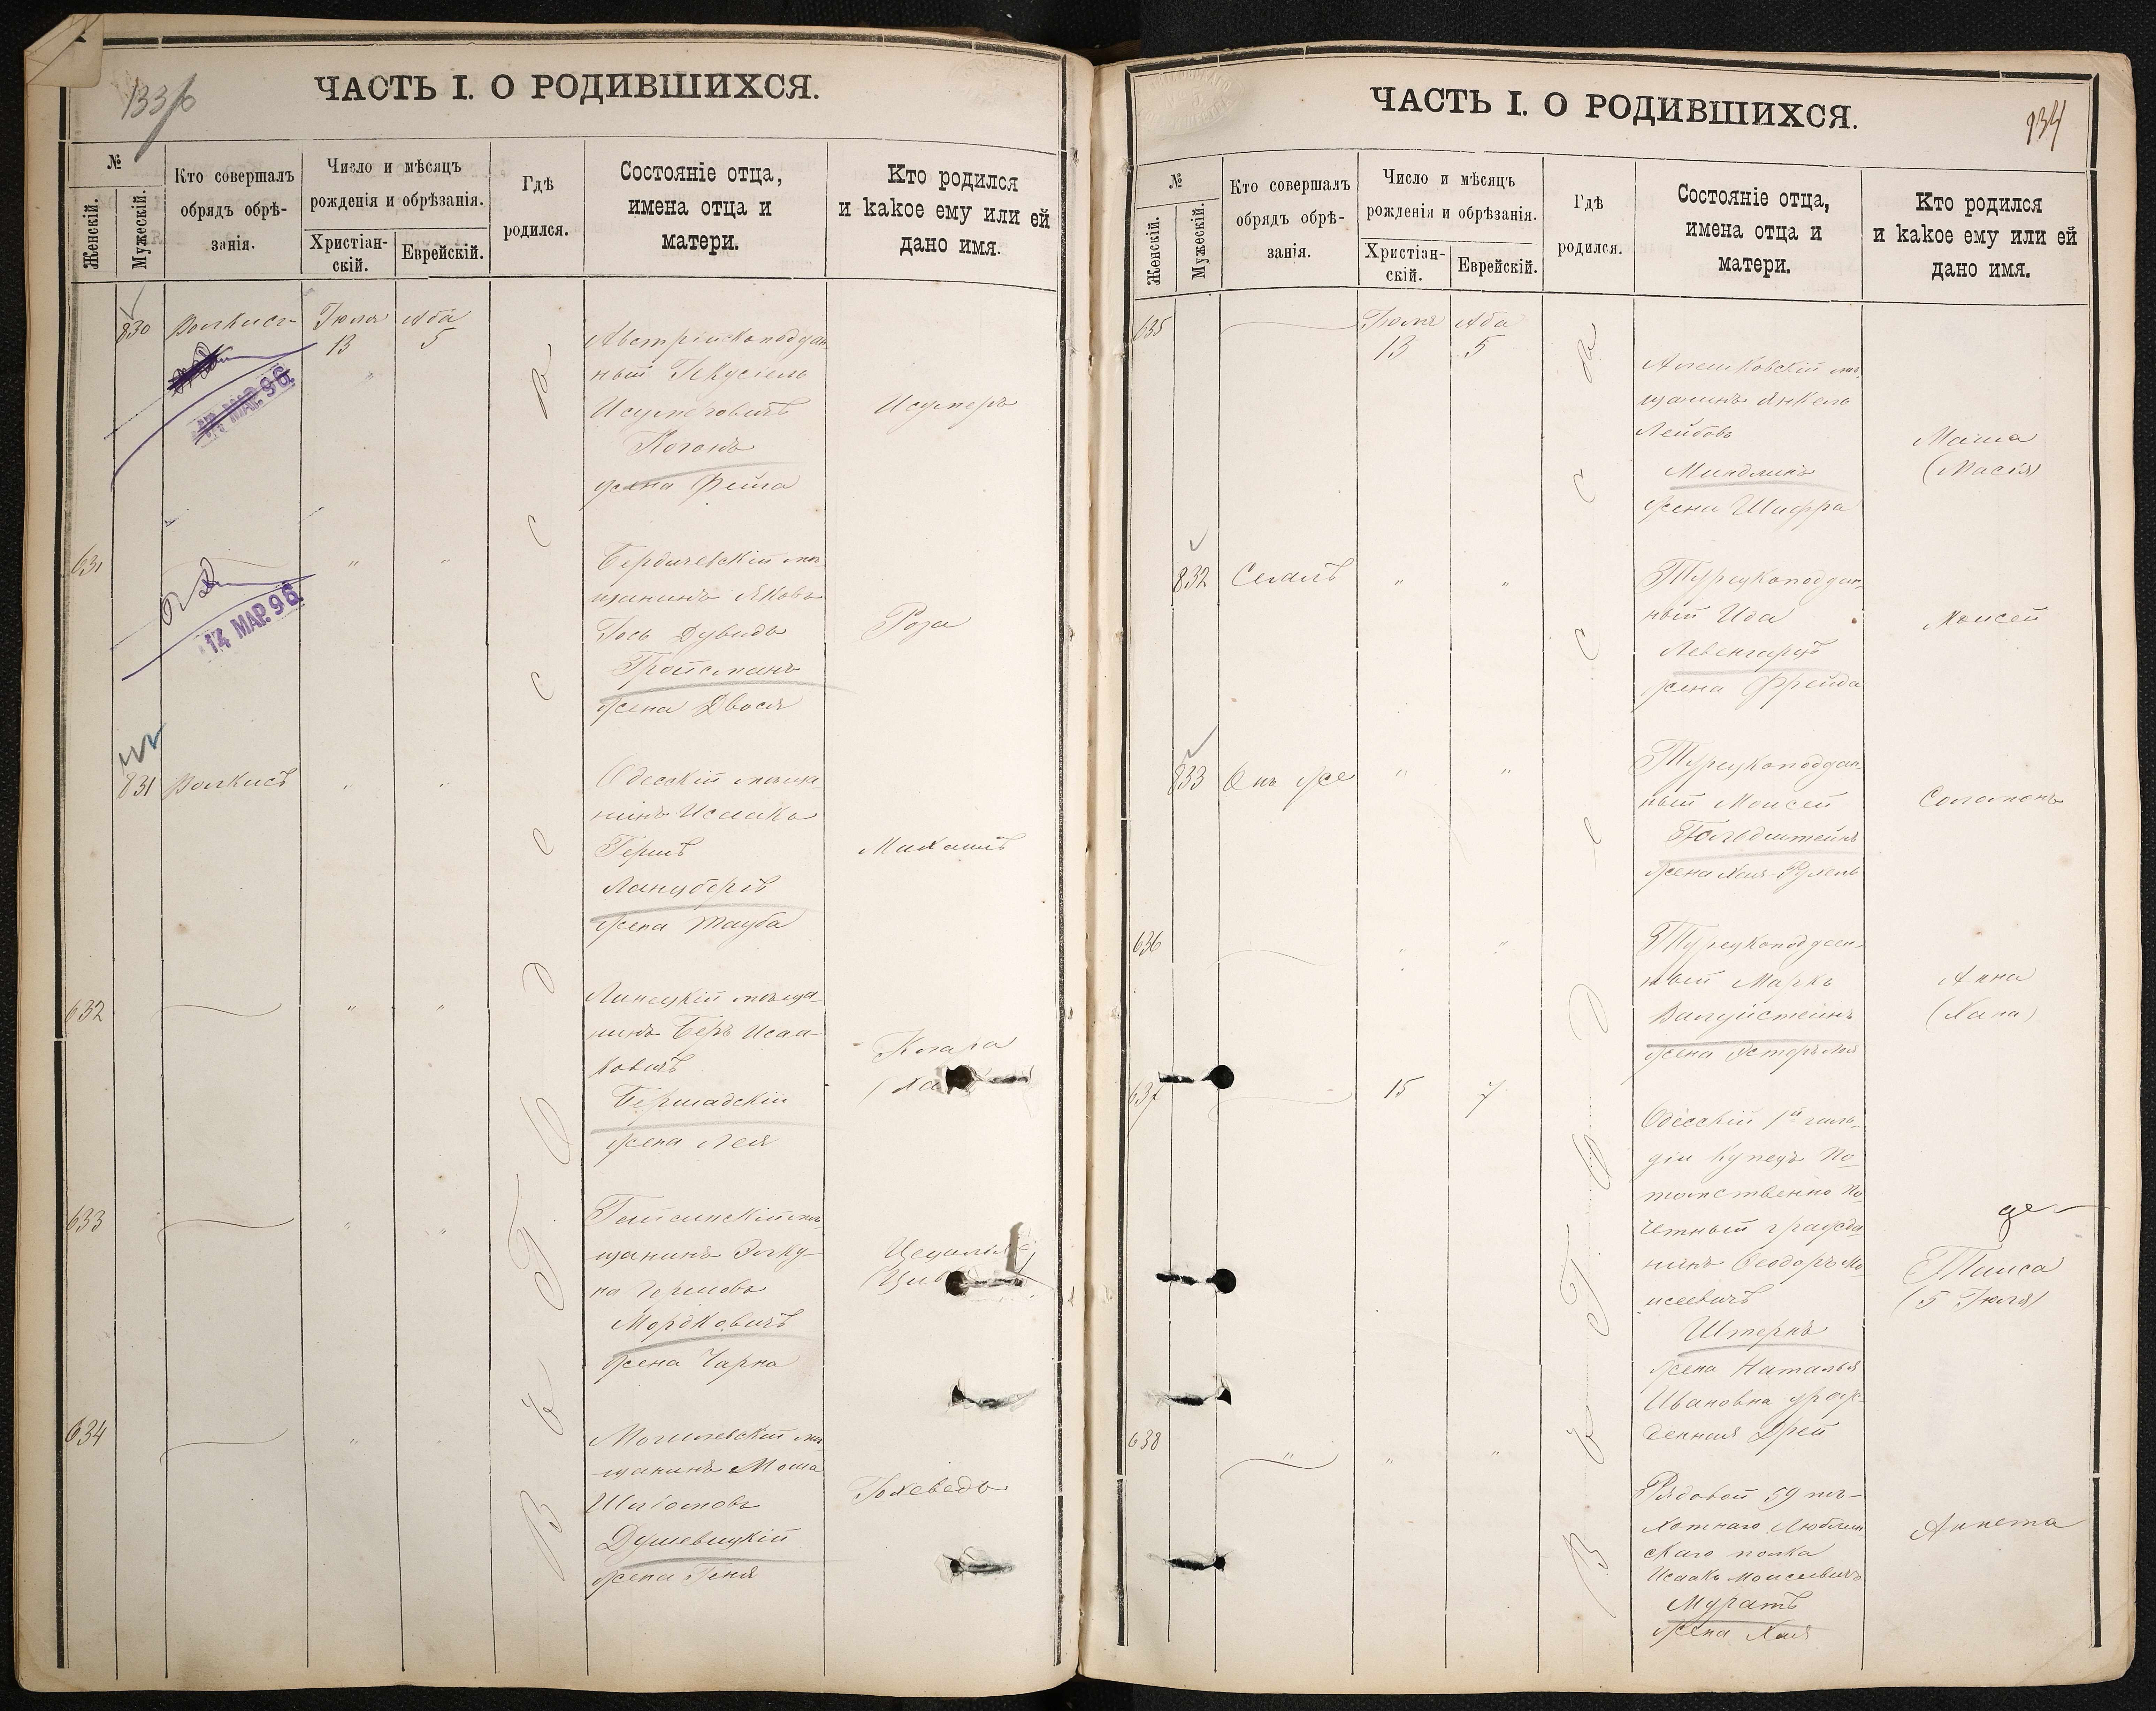 133/б
ЧАСТЬ I. О РОДИВШИХСЯ.
№
Женскій.
Мужескій.
Кто совершалъ
обрядъ обрѣ-
занія.
Число и мѣсяцъ
рожденія и обрѣзанія.
Христіан-
скій.
Еврейскій.
Гдѣ
родился.
Состояніе отца,
имена отца и
матери.
Кто родился
и какое ему или ей
дано имя.
830
Іюля
13
Аба
5
Австрійскоподдан
ный Іекусіель
Исумеровичъ
Коганъ
жена Фейга
Исумеръ
МАР. 96
631
"
"
Бердичевскій мѣ
щанинъ Яковъ
Іось Дувидъ
Гройсманъ
жена Двося
Роза
14 МАР. 96
831
"
"
Одесскій мѣща
нинъ Исаакъ
Герш
Ланцбергъ
жена Тауба
Михаилъ
632
"
"
Липецкій мѣща-
нинъ Беръ Исаа-
ковичъ
Бершадскій
жена Лея
Клара
(Ха
633
"
"
Гайсинскій мѣ
щанинъ Элку-
на Гершовъ
Мордковичъ
жена Чарна
Цецилія
634
"
Могилевскій мѣ
щанинъ Моша
Шліомовъ
Душевицкій
жена Геня
Іохеведъ
Въ г. Одесса
134
ЧАСТЬ I. О РОДИВШИХСЯ.
№
Женскій.
Мужескій.
Кто совершалъ
обрядъ обрѣ-
занія.
Число и мѣсяцъ
рожденія и обрѣзанія.
Христіан-
скій.
Еврейскій.
Гдѣ
родился.
Состояніе отца,
имена отца и
матери.
Кто родился
и какое ему или ей
дано имя.
635
Іюля
13
Аба
5
Алешковскій мѣ
щанинъ Янкель
Лейбовъ
Миндлинъ
жена Шифра
Маша
(Мася)
832
"
"
Турецкоподдан
ный Ида
жена Фрейда
Моисей
833
Онъ же
"
"
Турецкоподдан
ный Моисей
Гольдштейнъ
жена Хая-Рухель
Соломонъ
636
"
"
Турецкоподдан
ный Маркъ
жена Эстеръ Лея
Анна
(Хана)
637
15
7
Одесскій 1й гиль-
діи купецъ По
томственно По
четный гражда
нинъ Ѳеодоръ Мо
исеевичъ
Штернъ
жена Наталья
Ивановна урож
денная Дрей
Таиса
(5 Іюля)
638
"
"
"
Рядовой 59 пѣ-
хотнаго Люблин
скаго полка
Исаакъ Моисеевичъ
Муратъ
жена Хая
Аннета
Въ г. Одесса